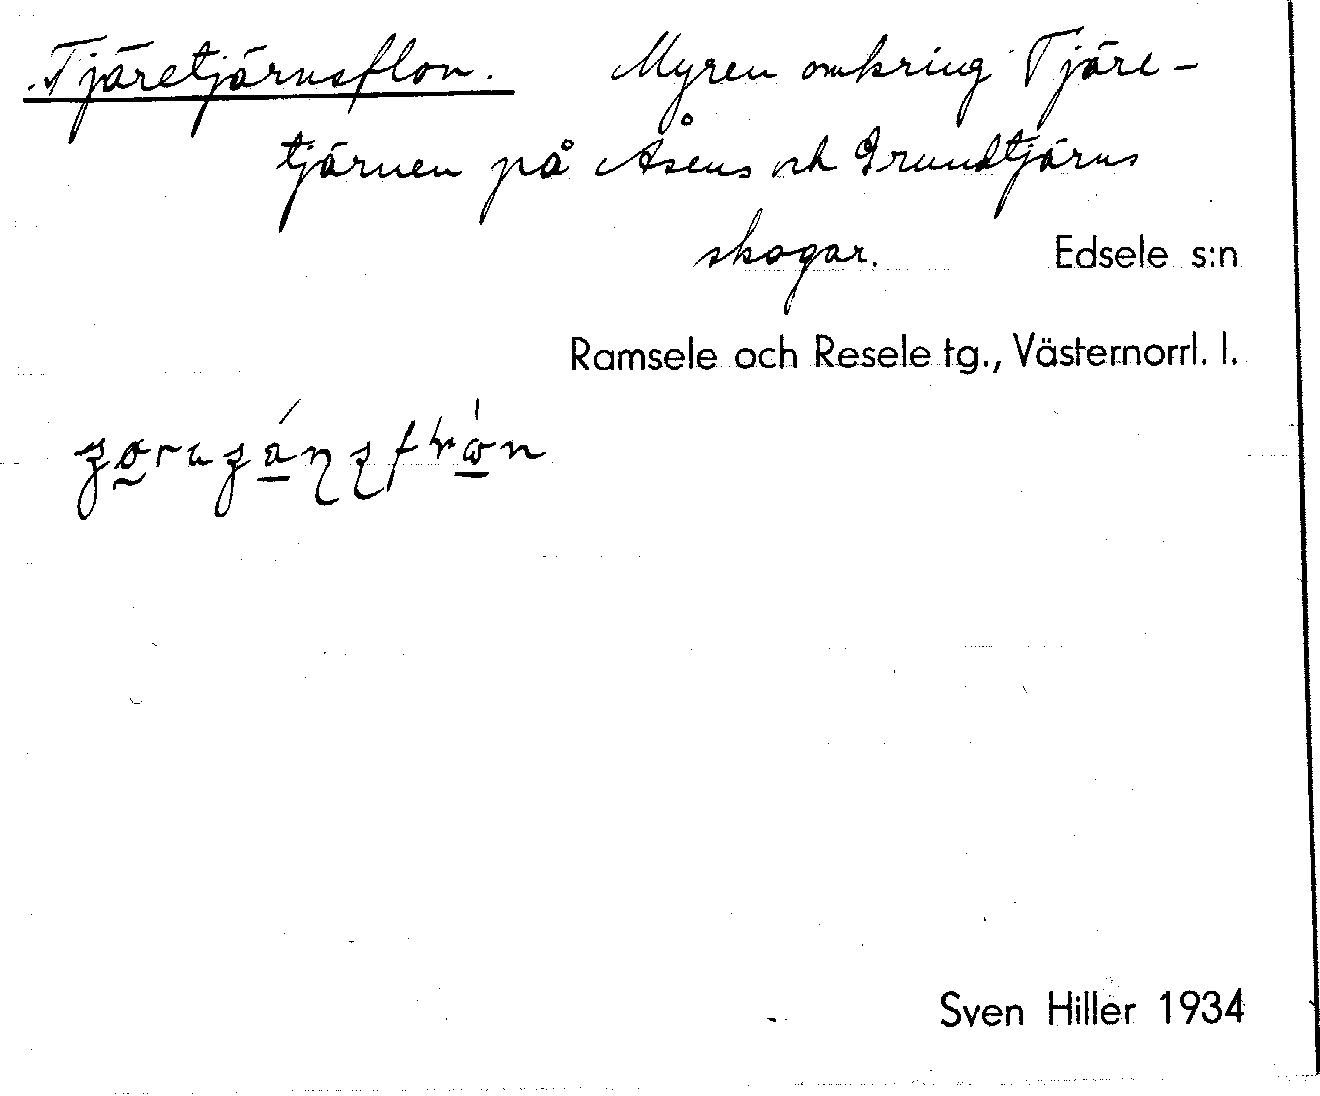 Tjäretjärnsflon. Myren omkring Tjäre-
tjärnen på Åsens och Grundtjärns
skogar. Edsele s:n
Ramsele och Resele tg., Västernorrl. l.
Sven Hiller 1934